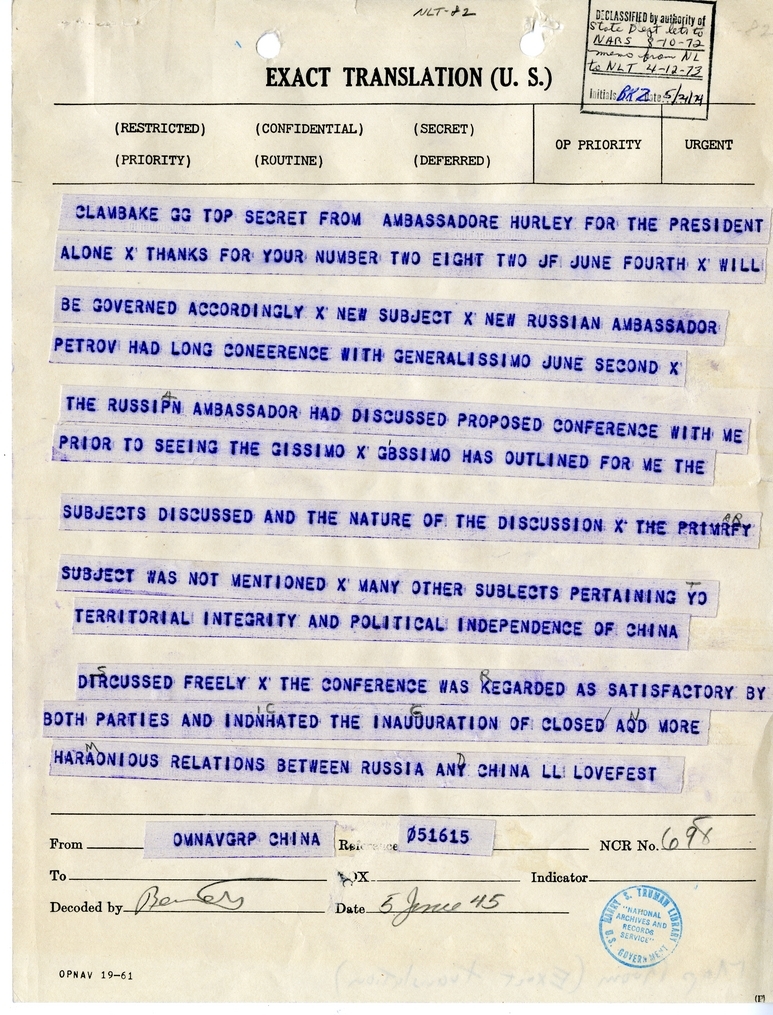 NLT-82
DECLASSIFIED by authority of
State Dept lets to
NARS 8-10-72
memo from NL
to NLT 4-12-73
Initials BKZ Date 5/21/74
EXACT TRANSLATION (U. S.)
(RESTRICTED) (CONFIDENTIAL) (SECRET)
(PRIORITY) (ROUTINE) (DEFERRED)
OP PRIORITY URGENT
CLAMBAKE GG TOP SECRET FROM AMBASSADORE HURLEY FOR THE PRESIDENT
ALONE X' THANKS FOR YOUR NUMBER TWO EIGHT TWO JF JUNE FOURTH X' WILL
BE GOVERNED ACCORDINGLY X' NEW SUBJECT X' NEW RUSSIAN AMBASSADOR
PETROV HAD LONG CONEERENCE WITH GENERALISSIMO JUNE SECOND X'
THE RUSSIPN AMBASSADOR HAD DISCUSSED PROPOSED CONFERENCE WITH ME
PRIOR TO SEEING THE GISSIMO X' GBSSIMO HAS OUTLINED FOR ME THE
SUBJECTS DISCUSSED AND THE NATURE OF THE DISCUSSION X' THE PRIMRFY
SUBJECT WAS NOT MENTIONED X' MANY OTHER SUBLECTS PERTAINING YO
TERRITORIAL INTEGRITY AND POLITICAL INDEPENDENCE OF CHINA
DTRCUSSED FREELY X' THE CONFERENCE WAS KEGARDED AS SATISFACTORY BY
BOTH PARTIES AND INDNHATED THE INAUUURATION OF CLOSED AOD MORE
HARAONIOUS RELATIONS BETWEEN RUSSIA ANY CHINA LL LOVEFEST
From OMNAVGRP CHINA Reference Ø51615 NCR No. 698
To Indicator
Decoded by Date 5 June 45
HARRY S. TRUMAN LIBRARY
"NATIONAL
ARCHIVES AND
RECORDS
SERVICE"
U. S. GOVERNMENT
OPNAV 19-61